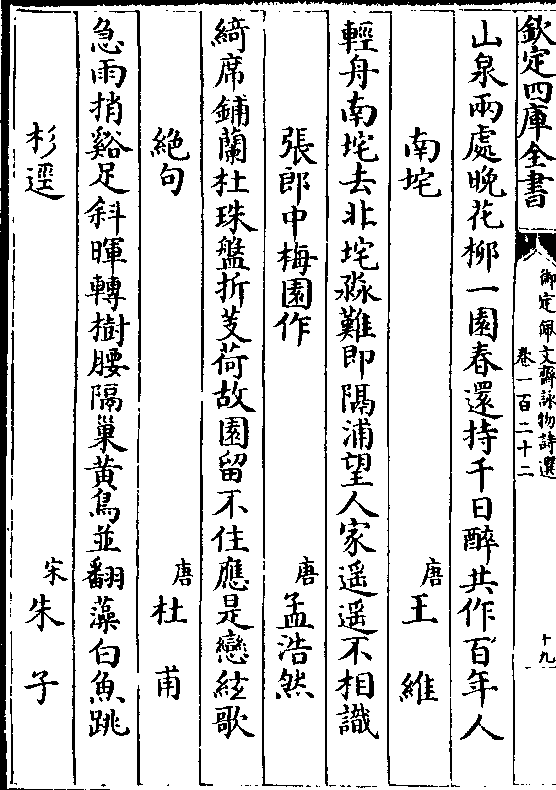 欽定四庫全書
御定佩文齋詠物詩選
卷一百二十二
十九
山泉兩處晚花柳一園春還持千日醉共作百年人
南垞 唐 王維
輕舟南垞去北垞淼難即隔浦望人家遥遥不相識
張郎中梅園作 唐 孟浩然
綺席鋪蘭杜珠盤折芰荷故園留不住應是戀絃歌
絶句 唐 杜甫
急雨捎谿足斜暉轉樹腰隔巢黄鳥並翻藻白魚跳
杉逕 宋 朱子